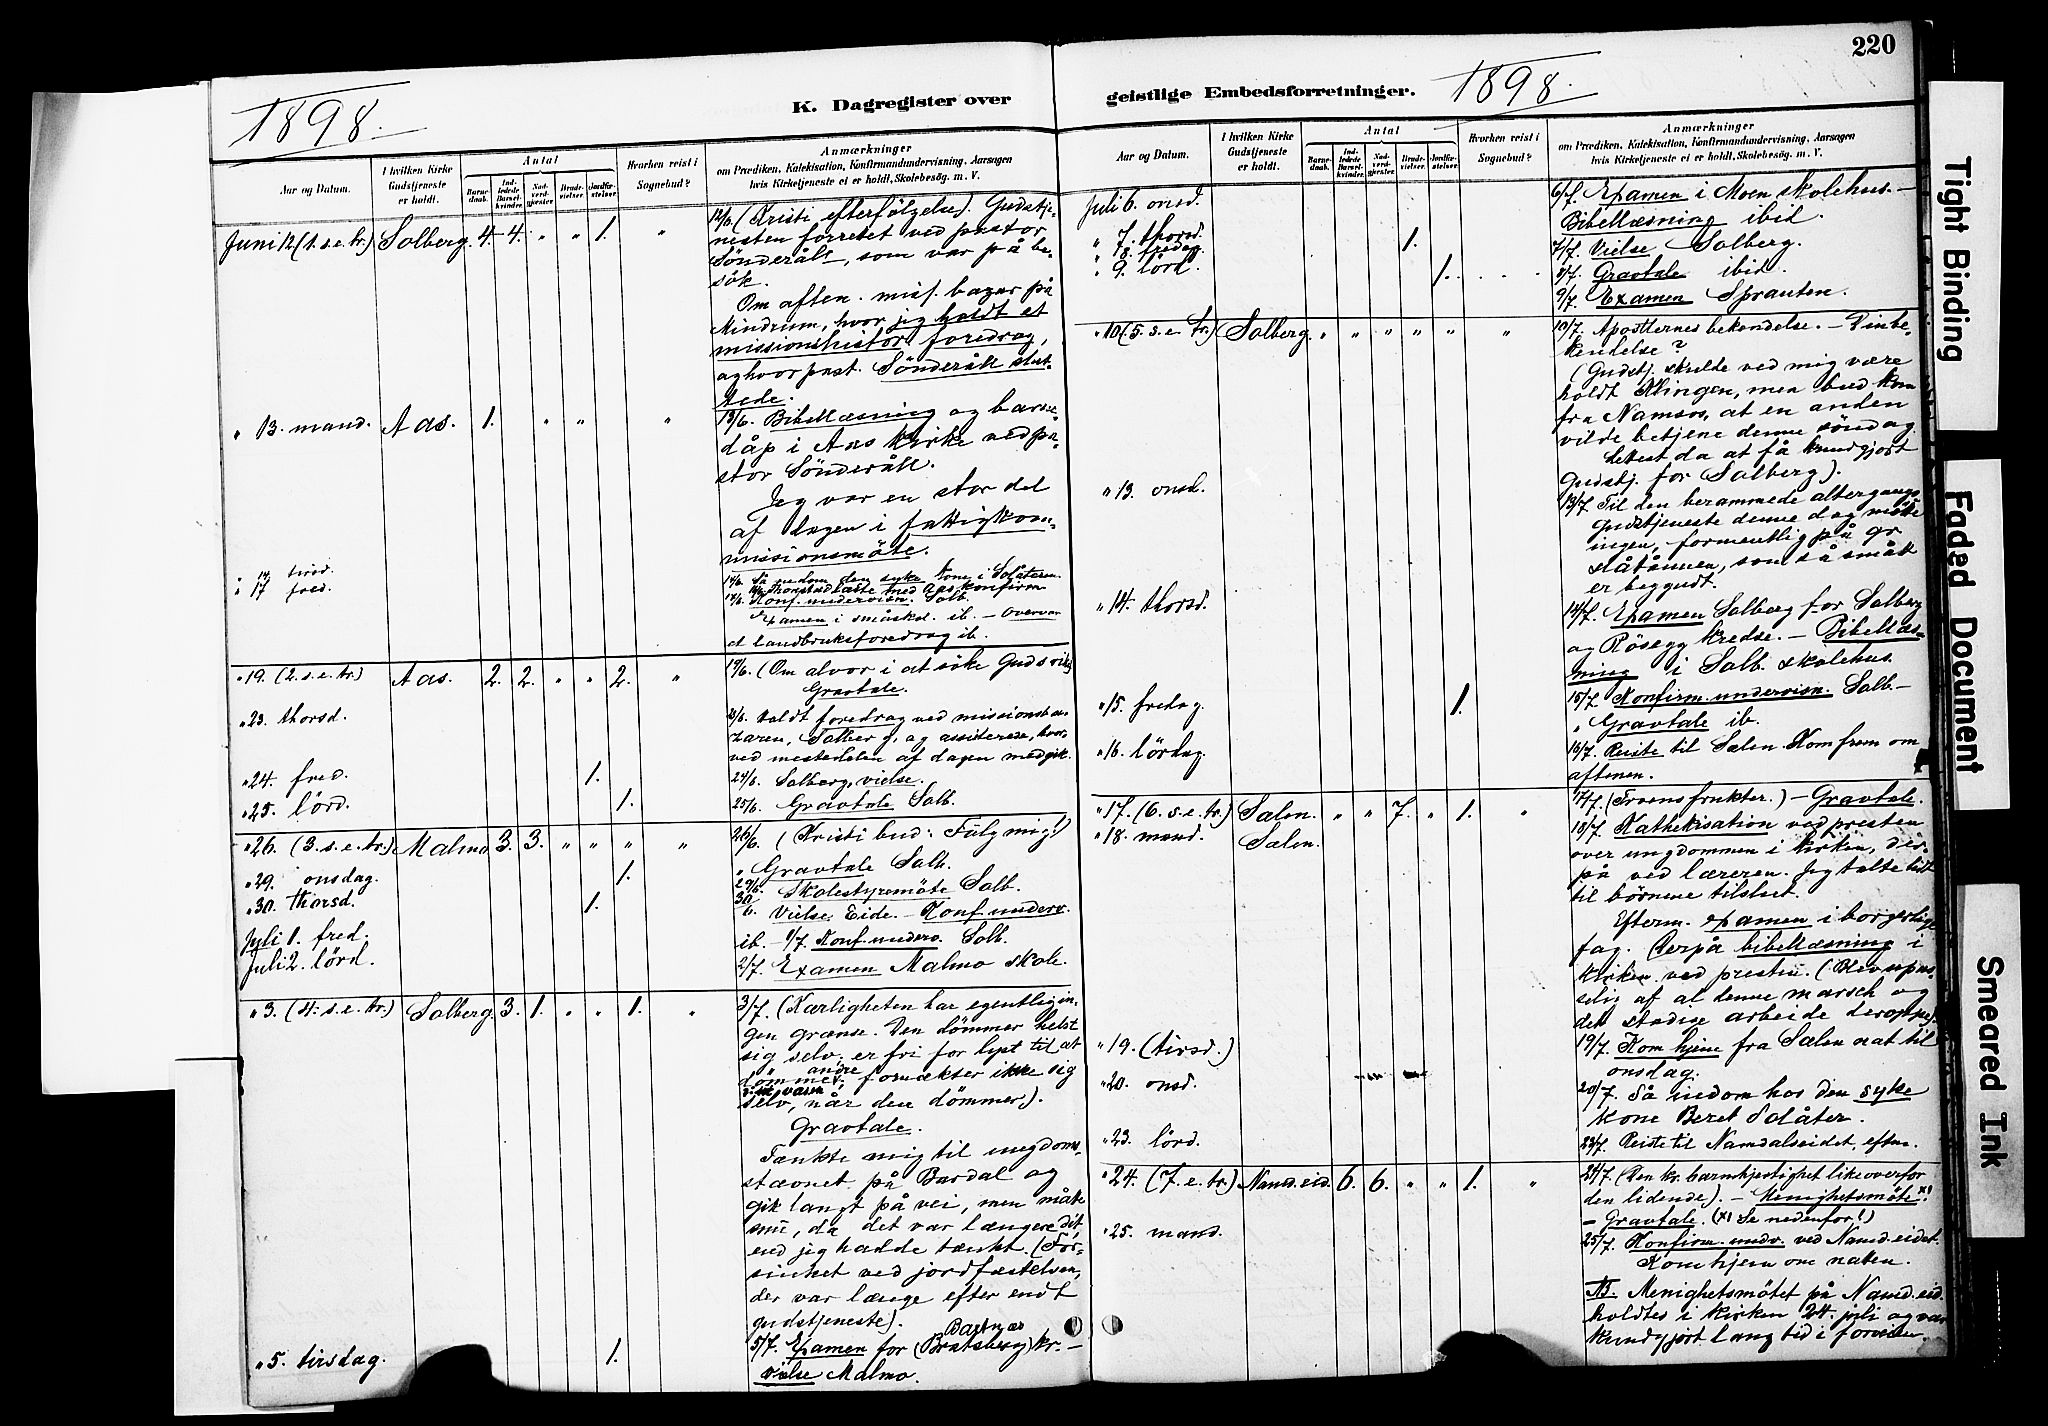 220
1898.
K. Dagregister over
geistlige Embedsforretninger.
1898.
Aar og Datum.
I hvilken Kirke Gudstjeneste er holdt.
Antal
Barne-daab.
Ind-ledede Barsel-kvinder.
Nad-verd-gjester.
Brude-vielser.
Jordfæ-stelser.
Hvorhen reist i Sognebud?
Anmærkninger
om Prædiken, Katekisation, Konfirmandundervisning, Aarsagen
hvis Kirketjeneste ei er holdt, Skolebesøg. m. V.
Juni 12 (1. s. e. tr.) Solberg. 4. 4. " " 1. " 12/6 (Kristi efterfølgelse). Gudstje-
nesten forrettet ved pastor
Sönderåll, som var på be-
sök.
Om aften. miss. bazar på
Mindrum, hvor jeg holdt et
missionshistor. foredrag,
og hvor past. Sönderåll slut-
tede.
" 13. mand. Aas. 1. " " " 13/6. Bibellæsning og barne-
dåp i Aas kirke ved pa-
stor Sönderåll.
Jeg var en stor del
af dagen i fattigkom-
missionsmöte.
" 14. tirsd. 14/6. Så nedom den syke kone i Solåteren.
" 17 fred. 17/6. Konf. undervisn. Solb.
Examen i småskol. ib. – Overvar
et landbruksforedrag ib.
" 19. (2. s. e. tr.) Aas. 2. 2. " " 2. " 19/6. (Om alvor i at söke Guds rike)
Gravtale.
" 23. thorsd. 23/6. Holdt foredrag ved missionsba-
zaren, Solberg, og assisterede, hvor-
ved mestedelen af dagen medgik.
" 24. fred. 1. 24/6. Solberg, vielse.
" 25. lörd. 1. 25/6. Gravtale Solb.
" 26. (3. s. e. tr.) Malmo 3. 3. " " " " 26/6. (Kristi bud: Fölg mig!)
" Gravtale Solb.
" 29. onsdag. 1. 29/6. Skolestyremöte Solb.
" 30. thorsd. 1. 30/6. Vielse Eide. – Konf. underv.
Juli 1. fred. ib. – 1/7. Konf. underv. Solb.
Juli 2. lörd. 2/7. Examen Malmo skole.
" 3. (4. s. e. tr.) Solberg. 3. 1. " " 1. " 3/7. (Kærligheten har egentlig in-
gen grænse. Den dömmer helst
sig selv; er fri for lyst til at
dömme andre; fornekter ikke sig
selv, når den dömmer).
Gravtale.
Tænkte mig til ungdoms-
stævnet på Bardal og
gik langt på vei, men måtte
snu, da det var længere dit,
end jeg hadde tænkt. (For-
sinket ved jordfæstelsen,
der var længe efter endt
gudstjeneste).
" 5. tirsdag. 1. 5/7. Examen for (Bratsberg) kr. –
vielse Malmo.
Aar og Datum.
I hvilken Kirke Gudstjeneste er holdt.
Antal
Barne-daab.
Ind-ledede Barsel-kvinder.
Nad-verd-gjester.
Brude-vielser.
Jordfæ-stelser.
Hvorhen reist i Sognebud?
Anmærkninger
om Prædiken, Katekisation, Konfirmandundervisning, Aarsagen
hvis Kirketjeneste ei er holdt, Skolebesøg. m. V.
Juli 6. onsd. 6/7. Examen i Moen skolehus. –
Bibellæsning ibid.
" 7. thorsd. 1. 7/7. Vielse Solberg.
" 8. fredag 1. 8/7. Gravtale ibid.
" 9. lörd. 9/7. Examen Sprauten.
" 10 (5. s. e. tr.) Solberg. " " " " " " 10/7. Apostlernes bekendelse. – Vin be-
kendelse?
(Gudstj. skulde ved mig være
holdt Klingen, men bud kom
fra Namsos, at en anden
vilde betjene denne söndag.
da at få kundgjort
gudstj. for Solberg).
" 13. onsd. 13/7. Til den berammede altergangs
gudstjeneste denne dag mötte
ingen, formentlig på gr
slåtonnen, som så smått
er begyndt.
" 14. thorsd. 14/7. Examen Solberg for Solberg
og Rösegg kredse. – Bibellæs-
ning i Solb. skolehus.
" 15. fredag. 1. 15/7. Konfirm. undervisn. Solb –
" Gravtale ib.
" 16. lördag. 16/7. Reiste til Sælen. Kom frem om
aftenen.
" 17. (6. s. e. tr.) Sælen. " " 7. " 1. " 17/7. (Troens frukter.) – Gravtale.
" 18. mand. Sælen. 18/7. Kathekisation ved presten
over ungdommen i kirken, der-
på ved læreren. Jeg talte litt
til börnene tilslut.
Efterm. examen i borgerlige
fag. Derpå bibellæsning i
kirken ved presten. (Blev upas-
selig af al denne marsch og
det stadige arbeide deroppe).
" 19. (tirsd.) 19/7. Kom hjem fra Sælen nat til
onsdag.
" 20. onsd. 20/7. Så indom hos den syke
kone Beret Solåter.
" 23. lörd. 23/7. Reiste til Namdalseidet, efterm.
" 24. (7. e. tr.) Namd.eid. 6. 6. " " 1. " 24/7. (Den kr. barmhjertighet likeoverfor
den lidende). – Menighetsmöte x)!
– Gravtale. (x) Se nedenfor!)
" 25. mand. 25/7. Konfirm. undv. ved Namd.eidet.
Kom hjem om natten.
NB. Menighetsmötet på Namd.eid.
holdtes i kirken 24. juli og var
kundgjort lang tid i forveien.
Tight Binding
Faded Document
Smeared Ink